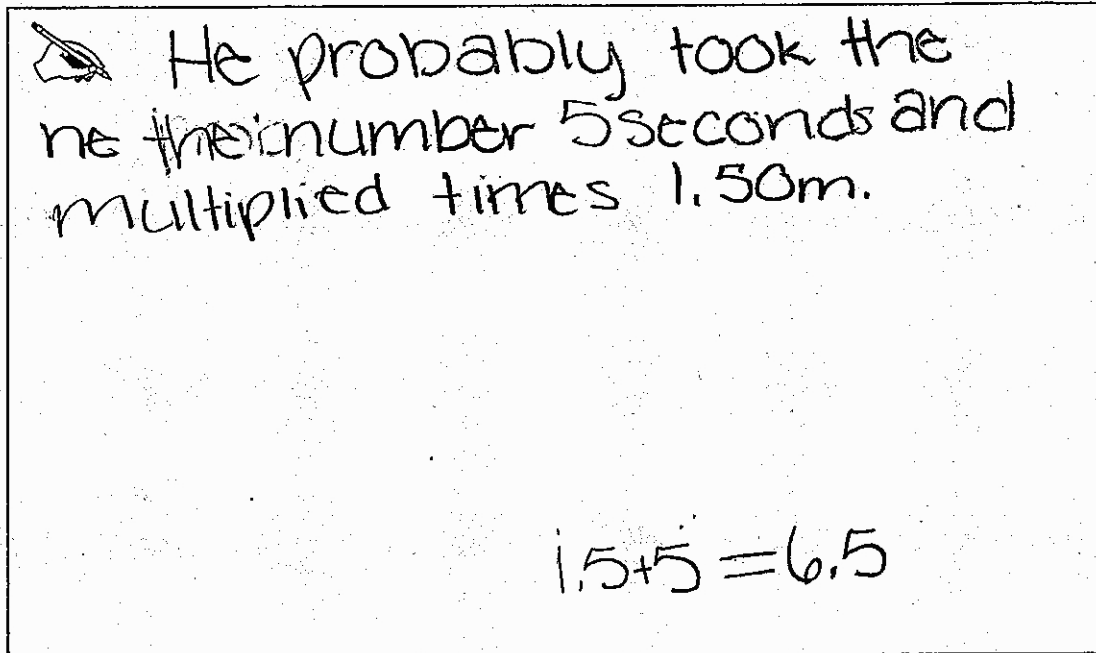 He probably took the
ne their number 5 seconds and
multiplied times 1.50m.
1.5+5=6.5